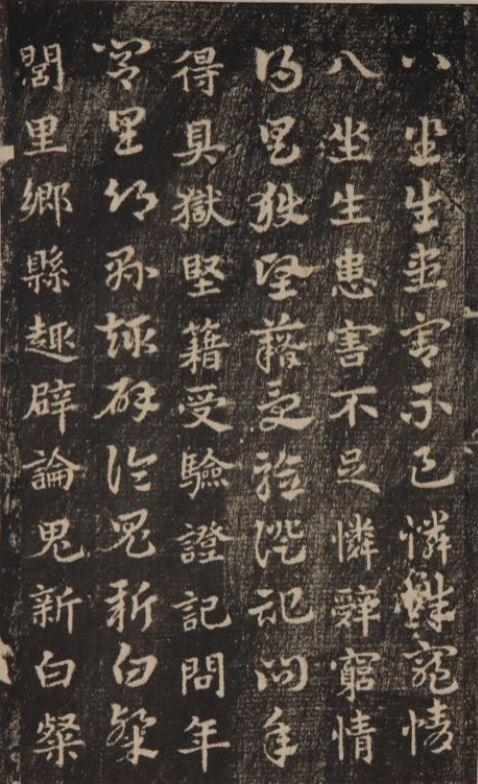 八坐生患害不足憐辭窮情
八坐生患害不足憐辭窮情
得具獄堅藉受驗證記問年
得具獄堅藉受驗證記問年
閭里鄉縣趣辟論鬼新白粲
閭里鄉縣趣辟論鬼新白粲